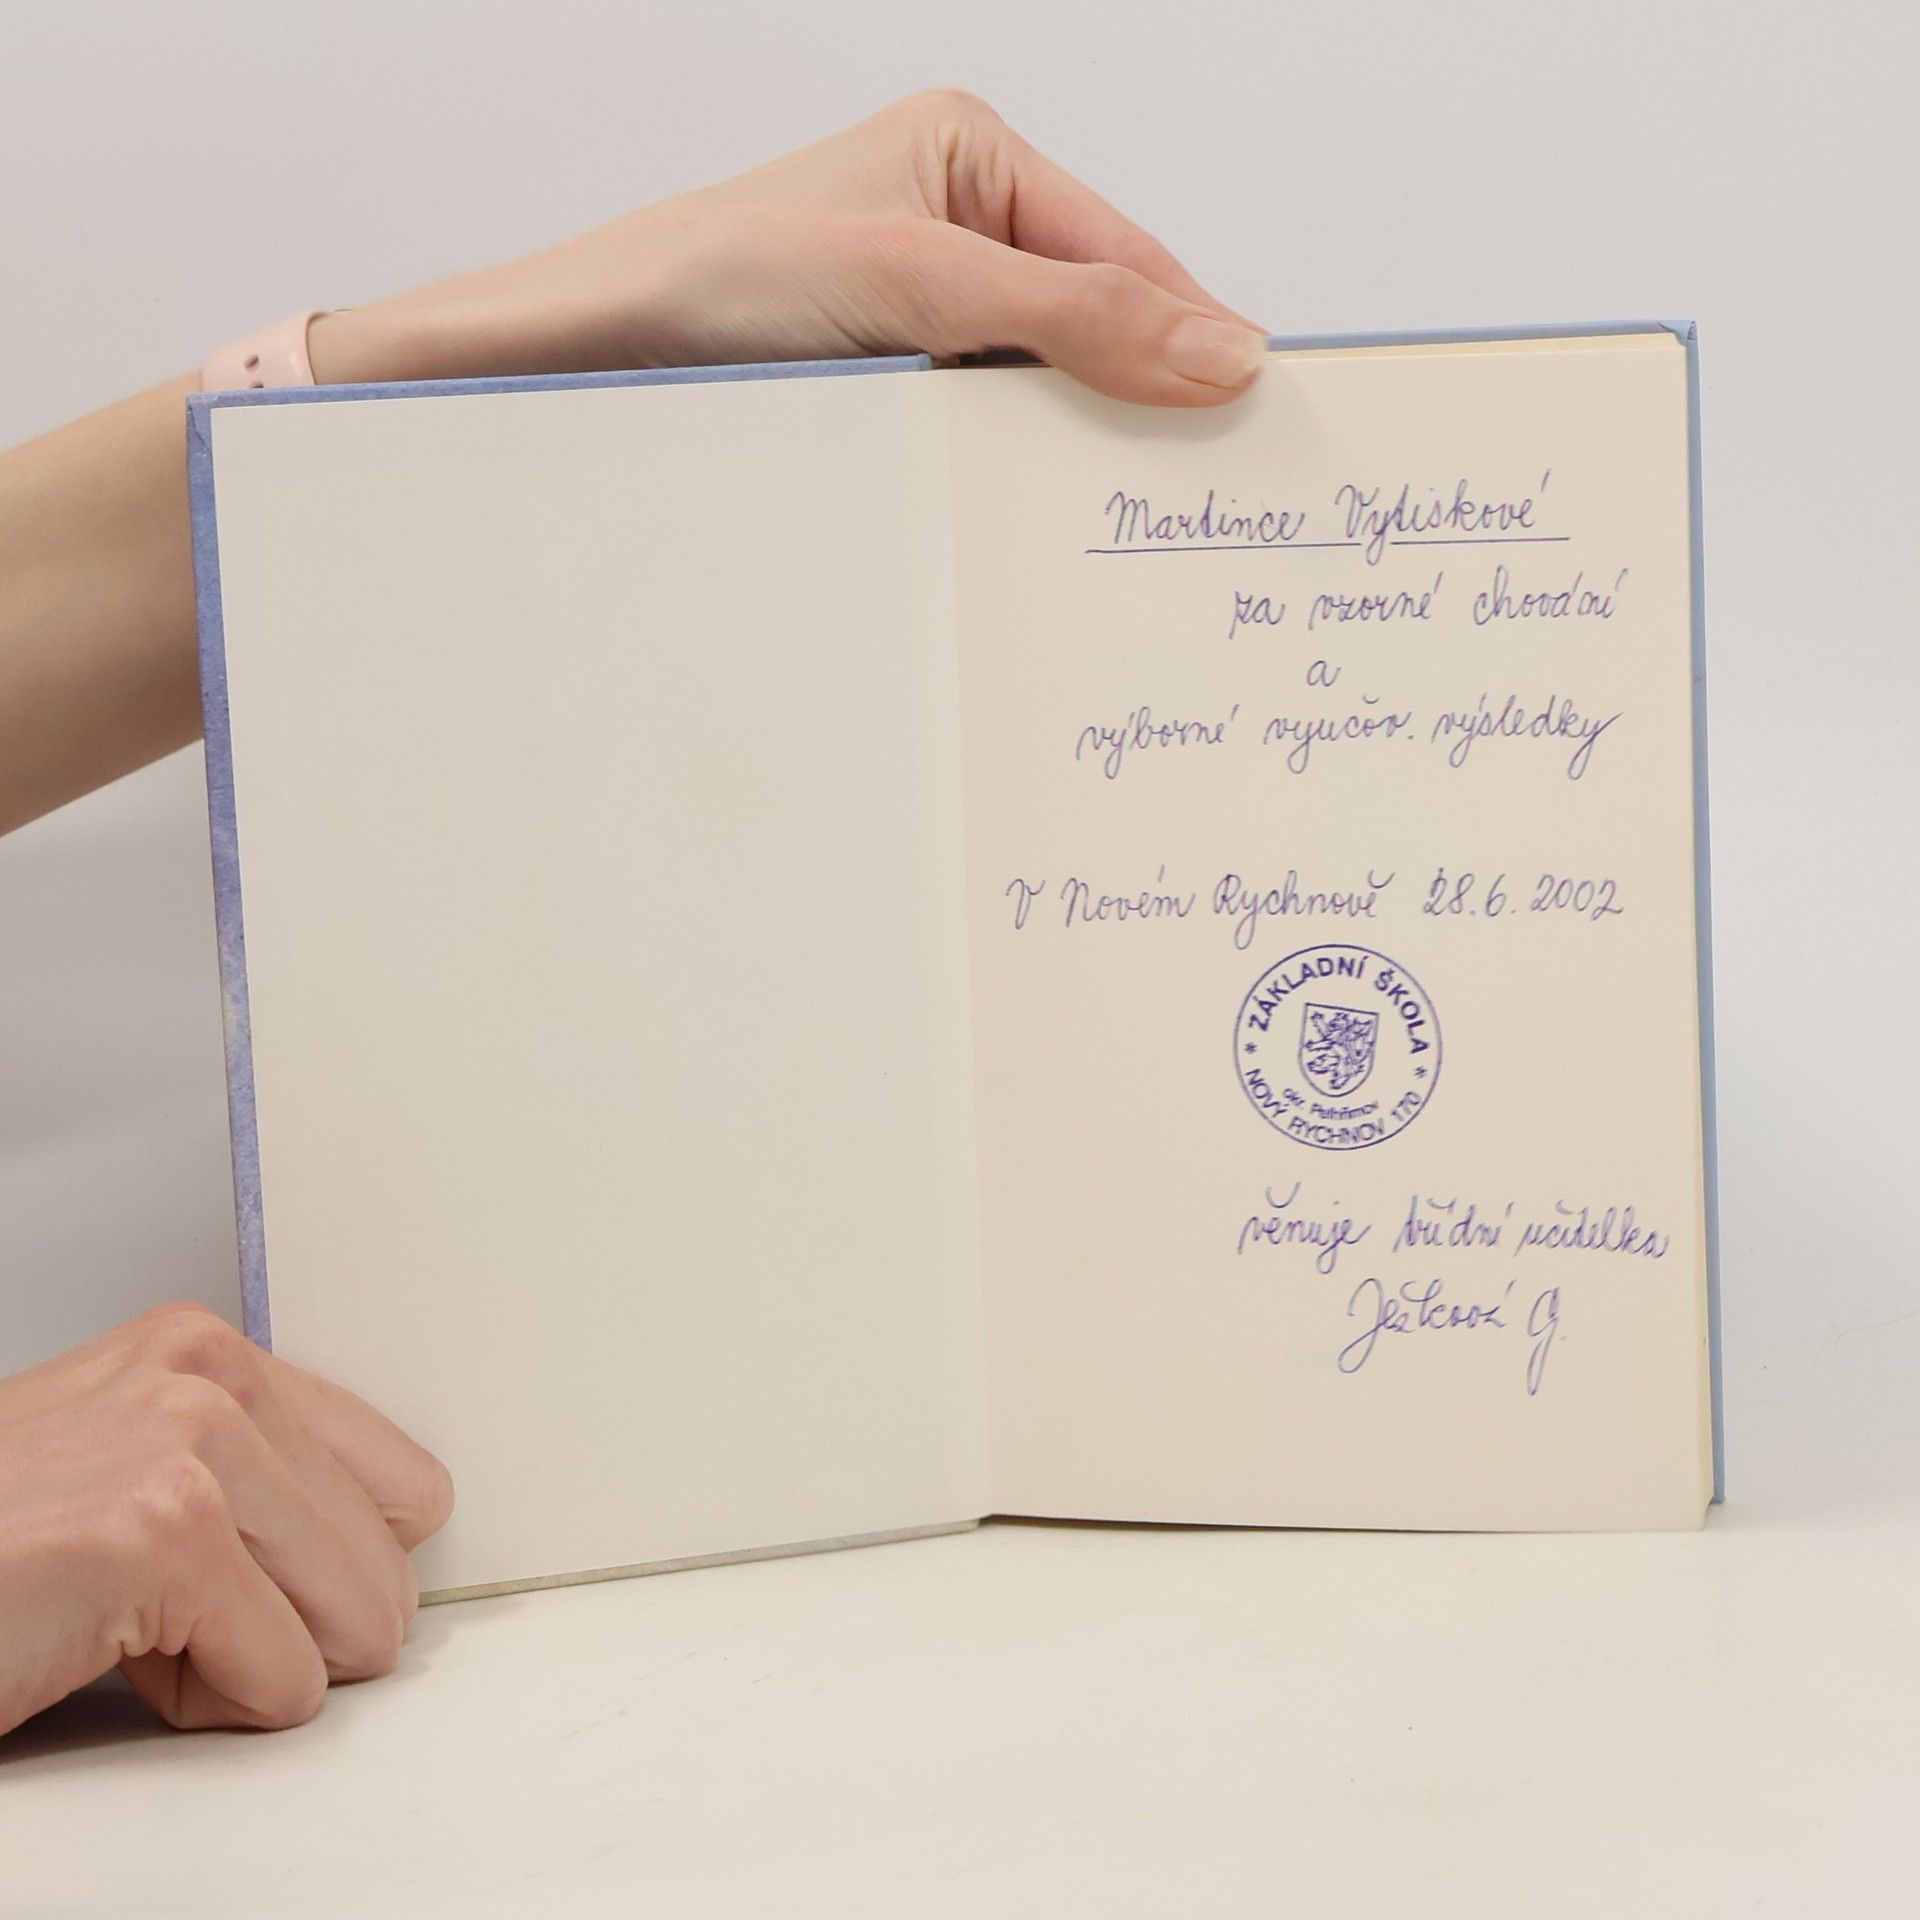 Martince Vytiskové
za vzorné chování
a
výborné vyučov. výsledky
V Novém Rychnově 28.6.2002
* ZÁKLADNÍ ŠKOLA *
okr. Pelhřimov
NOVÝ RYCHNOV 170
věnuje třídní učitelka
Ješková G.